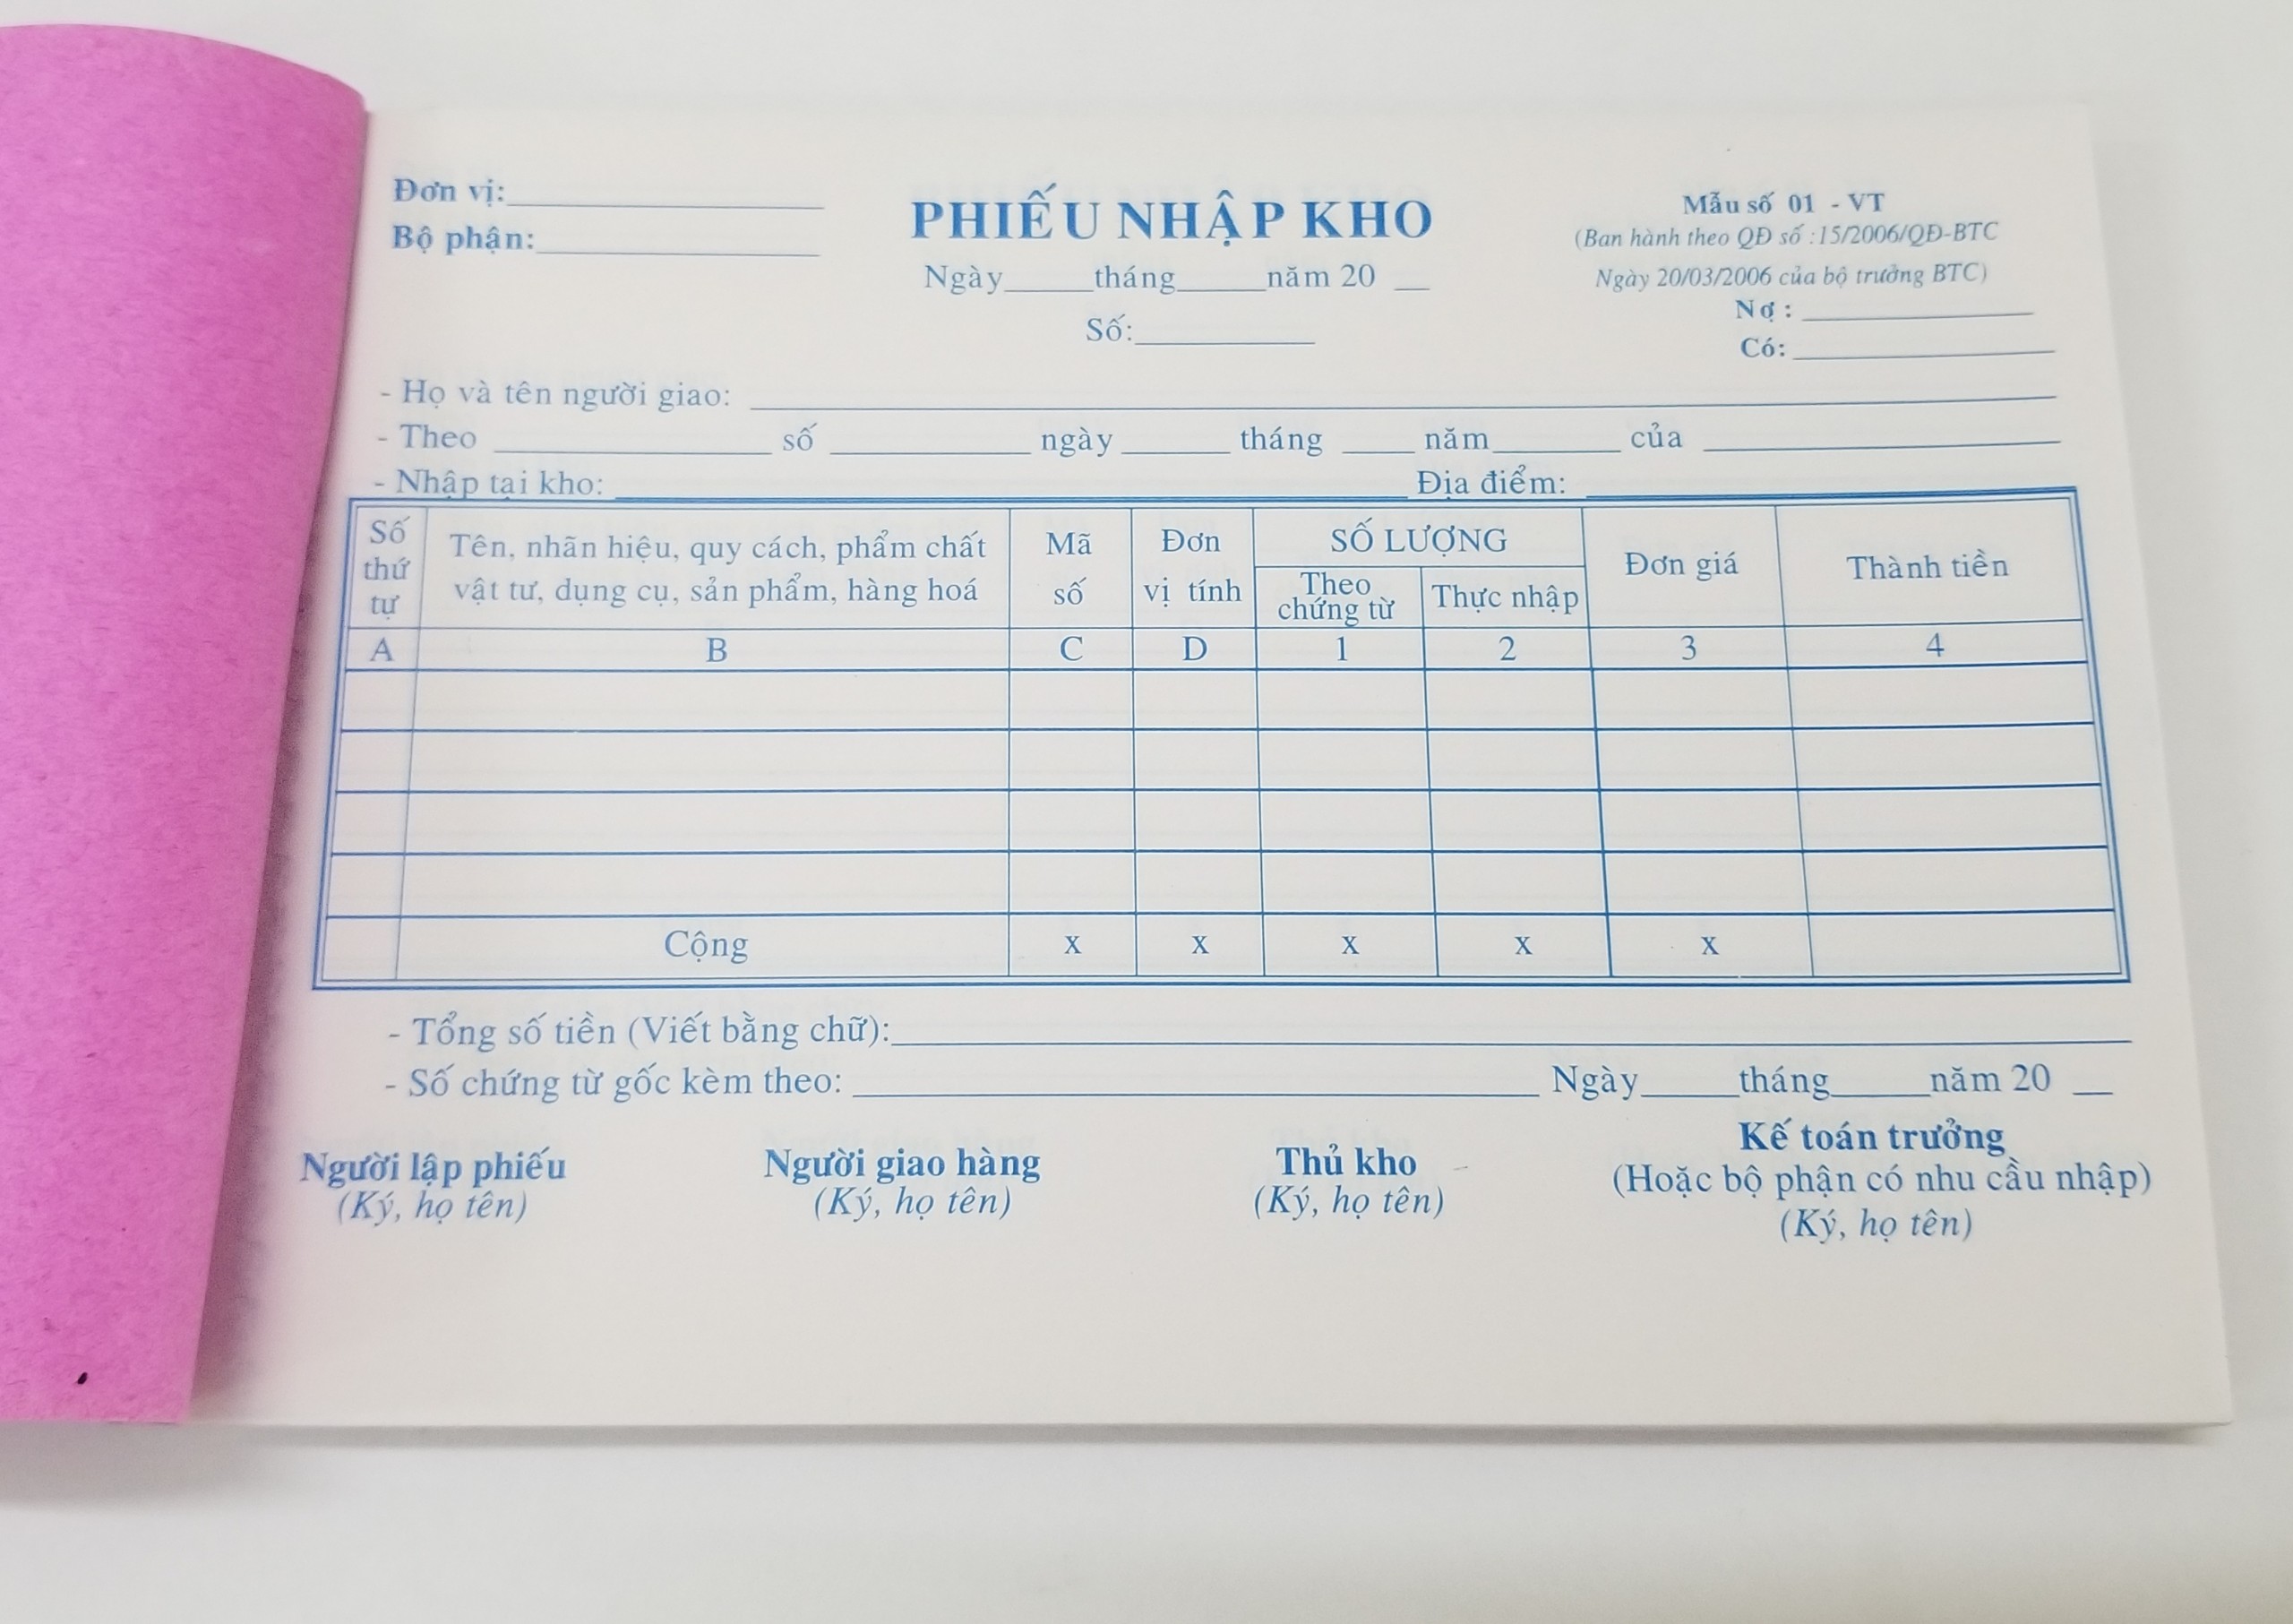 Đơn vị:
Bộ phận:
PHIẾU NHẬP KHO
Ngày tháng năm 20
Số:
Mẫu số 01 - VT
(Ban hành theo QĐ số :15/2006/QĐ-BTC
Ngày 20/03/2006 của bộ trưởng BTC)
Nợ :
Có:
- Họ và tên người giao:
- Theo số ngày tháng năm của
- Nhập tại kho: Địa điểm:
Số thứ tự
Tên, nhãn hiệu, quy cách, phẩm chất
vật tư, dụng cụ, sản phẩm, hàng hoá
Mã số
Đơn vị tính
SỐ LƯỢNG
Theo chứng từ
Thực nhập
Đơn giá
Thành tiền
A B C D 1 2 3 4
Cộng x x x x x
- Tổng số tiền (Viết bằng chữ):
- Số chứng từ gốc kèm theo: Ngày tháng năm 20
Người lập phiếu
(Ký, họ tên)
Người giao hàng
(Ký, họ tên)
Thủ kho
(Ký, họ tên)
Kế toán trưởng
(Hoặc bộ phận có nhu cầu nhập)
(Ký, họ tên)